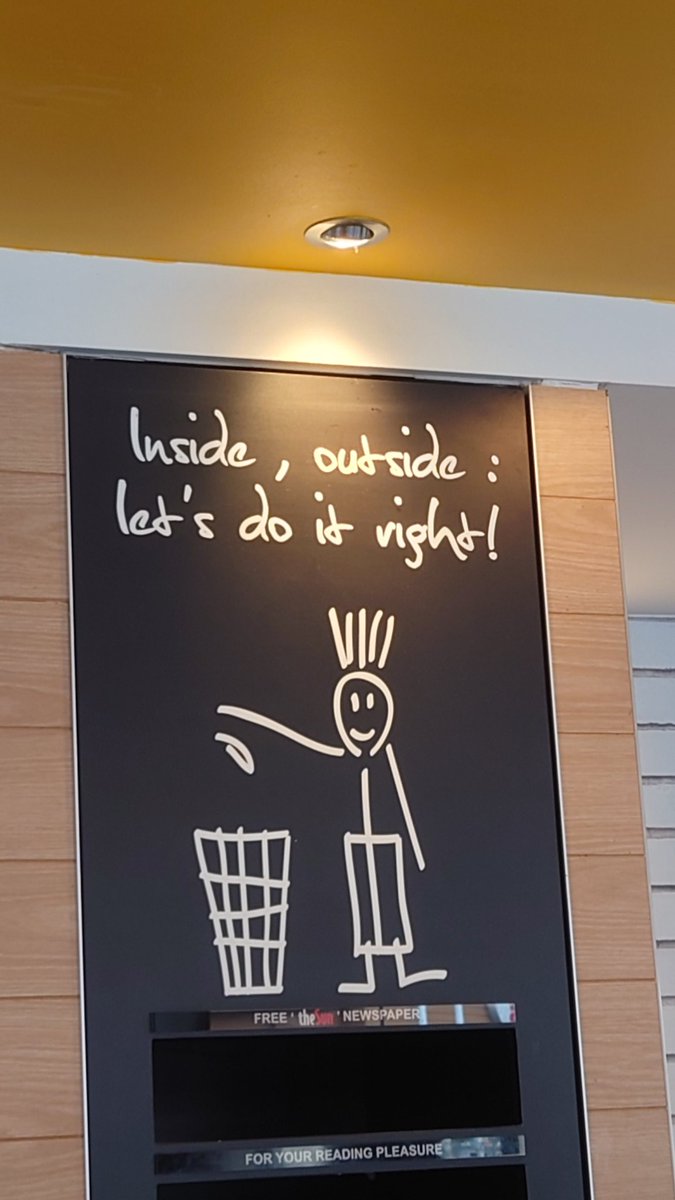 Inside, outside:
let's do it right!
FREE 'theSun' NEWSPAPER
FOR YOUR READING PLEASURE